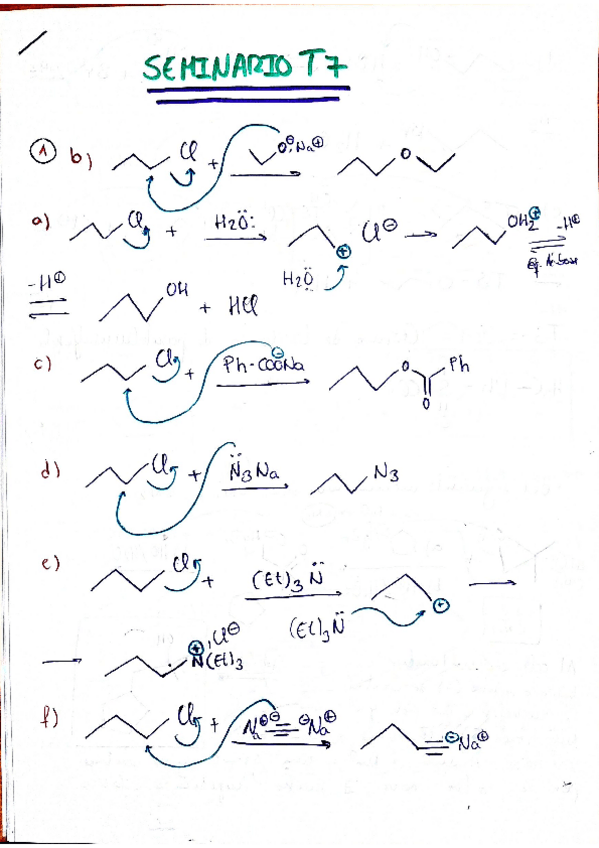 SEMINARIO T7
① b) Cl + O⊖, Na⊕ O
a) Cl + H2Ö: ⊕ Cl⊖ OH2⊕ -H⊕
H2Ö
-H⊕ OH + HCl
c) Cl + Ph-COO⊖Na O Ph
O
d) Cl + N̈3Na N3
e) Cl + (Et)3N̈ ⊕
(Et)3N̈
⊕N(Et)3, Cl⊖
f) Cl + Na⊕⊖≡⊖Na⊕ ≡⊖Na⊕